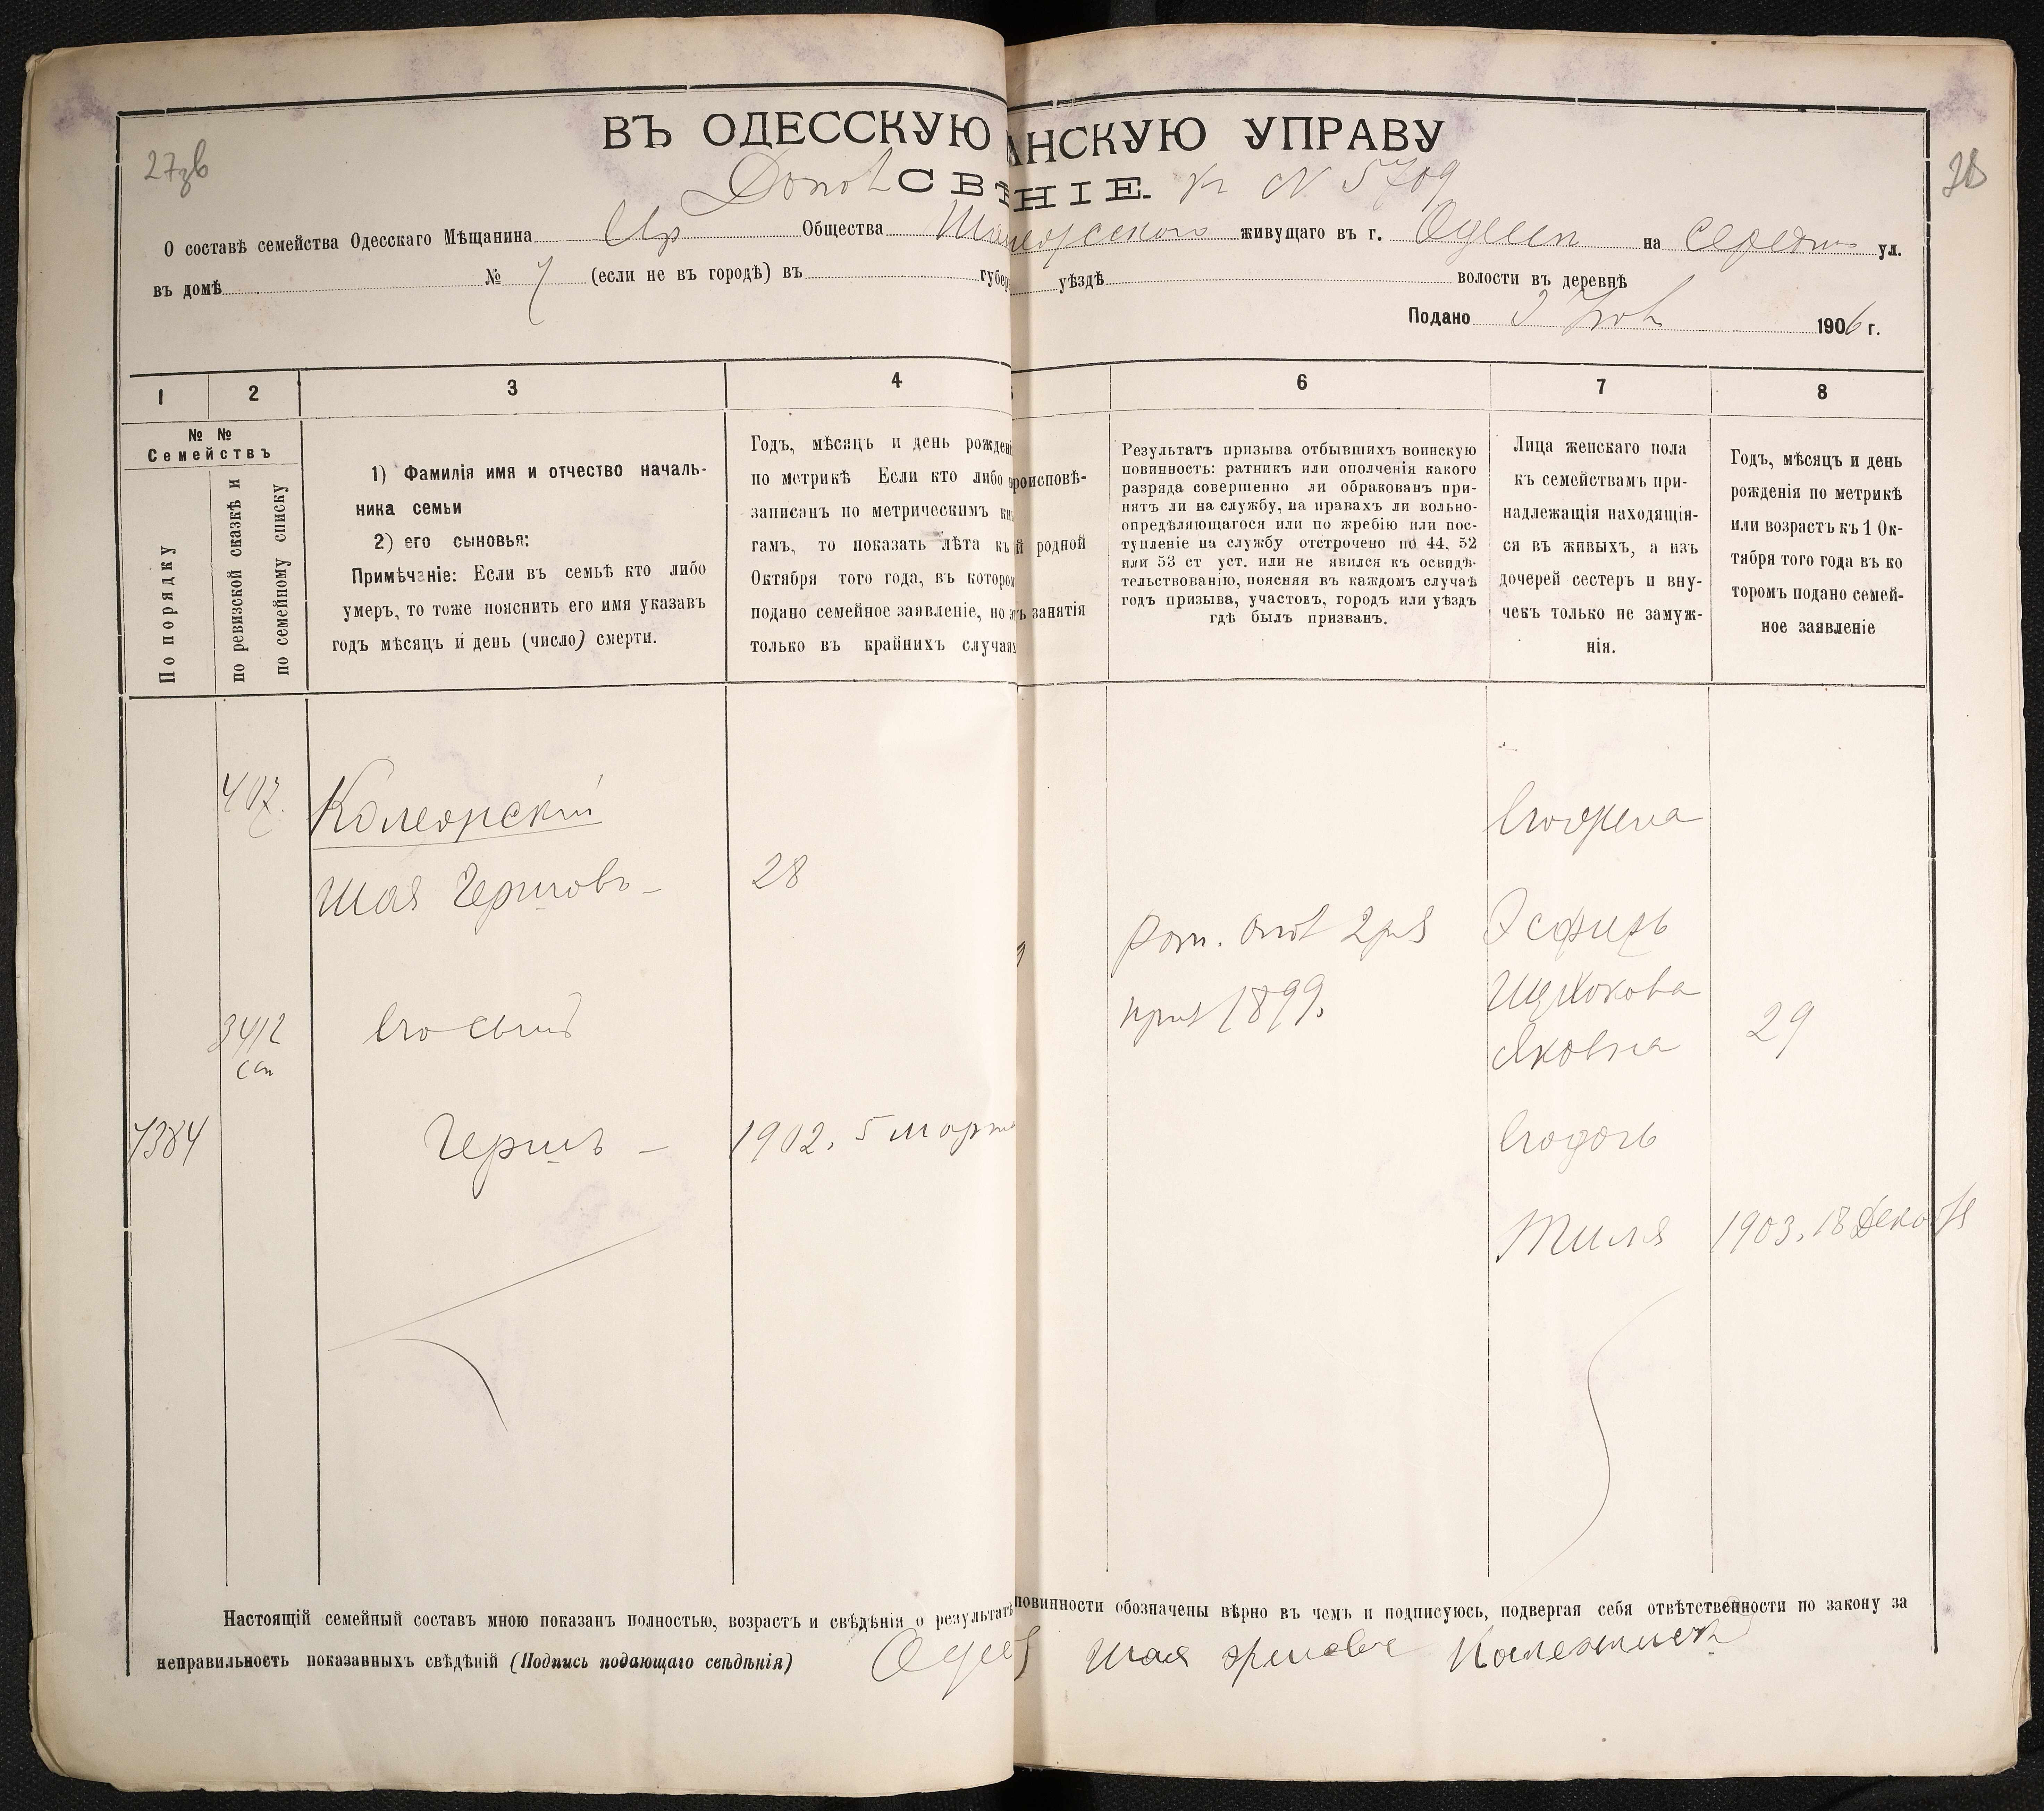 ВЪ ОДЕССКУЮ АНСКУЮ УПРАВУ
СВѢ НІЕ. № 5709
О составѣ семейства Одесскаго Мѣщанина Общества живущаго въ г. Одессѣ на ул.
въ домѣ № 7 (если не въ городѣ) въ губер уѣздѣ волости въ деревнѣ
Подано 3 1906 г.
1 2 3 4 6 7 8
№ №
Семействъ
По порядку
по ревизской сказкѣ и
по семейному списку
1) Фамилія имя и отчество началь-
ника семьи
2) его сыновья:
Примѣчаніе: Если въ семьѣ кто либо
умеръ, то тоже пояснить его имя указавъ
годъ мѣсяцъ и день (число) смерти.
Годъ, мѣсяцъ и день рожденія
по метрикѣ Если кто либо
записанъ по метрическимъ кни
гамъ, то показать лѣта къ
Октября того года, въ котором
подано семейное заявленіе, но э
только въ крайнихъ случаях
роисповѣ-
й родной
ъ занятія
Результатъ призыва отбывшихъ воинскую
повинность: ратникъ или ополченія какого
разряда совершенно ли обракованъ при-
нятъ ли на службу, на правахъ ли вольно-
опредѣляющагося или по жребію или пос-
тупленіе на службу отстрочено по 44, 52
или 53 ст уст. или не явился къ освидѣ-
тельствованію, поясняя въ каждомъ случаѣ
годъ призыва, участовъ, городъ или уѣздъ
гдѣ былъ призванъ.
Лица женскаго пола
къ семействамъ при-
надлежащія находящія-
ся въ живыхъ, а изъ
дочерей сестеръ и вну-
чекъ только не замуж-
нія.
Годъ, мѣсяцъ и день
рожденія по метрикѣ
или возрастъ къ 1 Ок-
тября того года въ ко
торомъ подано семей-
ное заявленіе
407.
Шая Гершовъ 28
Его жена
Рат. опол 2 р
приз 1899.
Эсфирь
Яковна 29
3412
сп
Его сынъ
7384 Гершъ 1902. 5 марта
Его дочь
Тиля 1903. 18 Декабря
Настоящій семейный составъ мною показанъ полностью, возрастъ и свѣдѣнія о результатѣ повинности обозначены вѣрно въ чемъ и подписуюсь, подвергая себя отвѣтственности по закону за
неправильность показанныхъ свѣдѣній (Подпись подающаго свѣдѣнія) Шая